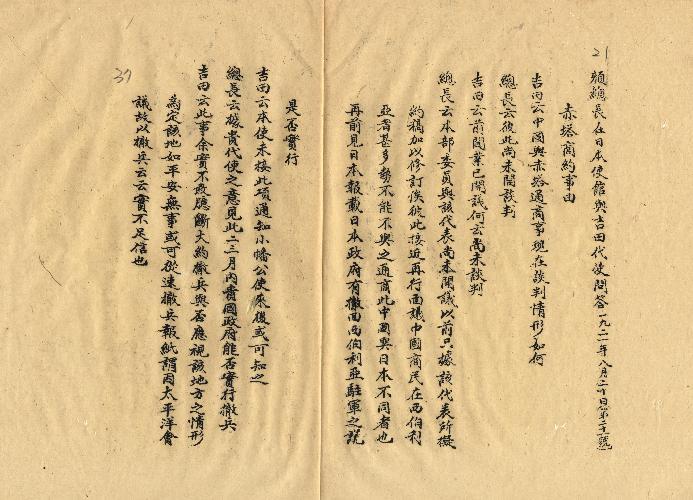 21
顏總長在日本使館與吉田代使問答一九二一年八月二十日
赤塔商約事由
吉田云中國與赤塔通商事現在談判情形如何
總長云彼此尚未開談判
吉田云前聞業已開議何云尚未談判
總長云本部委員與該代表尚未開議以前只據該代表所擬
約稿加以修訂俟彼此接近再行面議中國商民在西伯利
亞者甚多勢不能不與之通商此中國與日本不同者也
再前見日本報載日本政府有撤西西伯利亞駐軍之說
是否實行
吉田云本使未接此項通知小幡公使來後或可知之
總長云據貴代使之意見此二三月內貴國政府能否實行撤兵
吉田云此事余實不敢臆斷大約撤兵與否應視該地方之情形
為定該地如平安無事或可從速撤兵報紙謂因太平洋會
議故以撤兵云云實不足信也
37